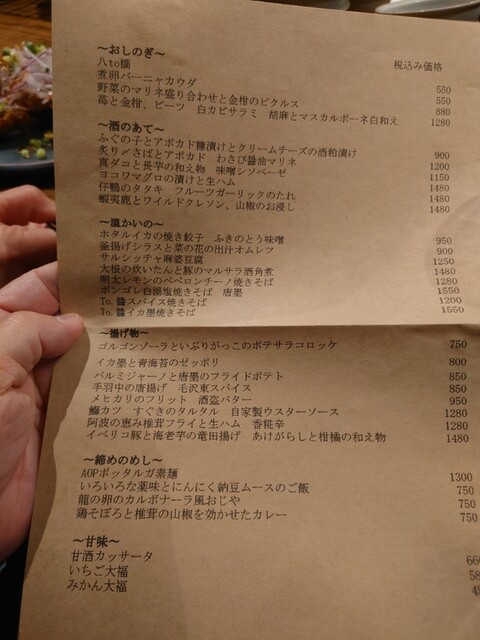 ~おしのぎ~
税込み価格
八to橋
煮卵バーニャカウダ 550
野菜のマリネ盛り合わせと金柑のピクルス 550
苺と金柑、ビーツ 白カビサラミ 胡麻とマスカルポーネ白和え 880
1280
~酒のあて~
ふぐの子とアボカド糠漬けとクリームチーズの酒粕漬け 900
炙り〆さばとアボカド わさび醤油マリネ 1200
真ダコと長芋の和え物 味噌シソベーゼ 1150
ヨコワマグロの漬けと生ハム 1480
仔鴨のタタキ フルーツガーリックのたれ 1480
蝦夷鹿とワイルドクレソン、山椒のお浸し 1480
~温かいの~
ホタルイカの焼き餃子 ふきのとう味噌 950
釜揚げシラスと菜の花の出汁オムレツ 900
サルシッチャ麻婆豆腐 1250
大根の炊いたんと豚のマルサラ酒角煮 1480
明太レモンのペペロンチーノ焼きそば 1280
ボンゴレ白湯塩焼きそば 唐墨 1550
To.醬スパイス焼きそば 1200
To.醬イカ墨焼きそば 1550
~揚げ物~
ゴルゴンゾーラといぶりがっこのポテサラコロッケ 750
イカ墨と青海苔のゼッポリ 800
パルミジャーノと唐墨のフライドポテト 850
手羽中の唐揚げ 毛沢東スパイス 850
メヒカリのフリット 酒盗バター 950
鰤カツ すぐきのタルタル 自家製ウスターソース 1280
阿波の恵み椎茸フライと生ハム 香糀辛 1280
イベリコ豚と海老芋の竜田揚げ あけがらしと柑橘の和え物 1480
~締めのめし~
AOPボッタルガ素麺 1300
いろいろな薬味とにんにく納豆ムースのご飯 750
龍の卵のカルボナーラ風おじや 750
鶏そぼろと椎茸の山椒を効かせたカレー 750
~甘味~
甘酒カッサータ
いちご大福
みかん大福